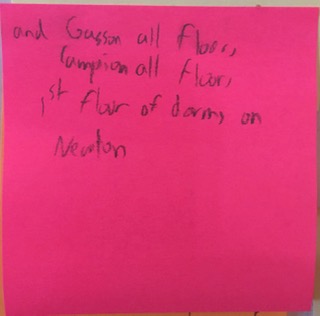 and Gasson all floors,
Campion all floors,
1st floor of dorms on
Newton